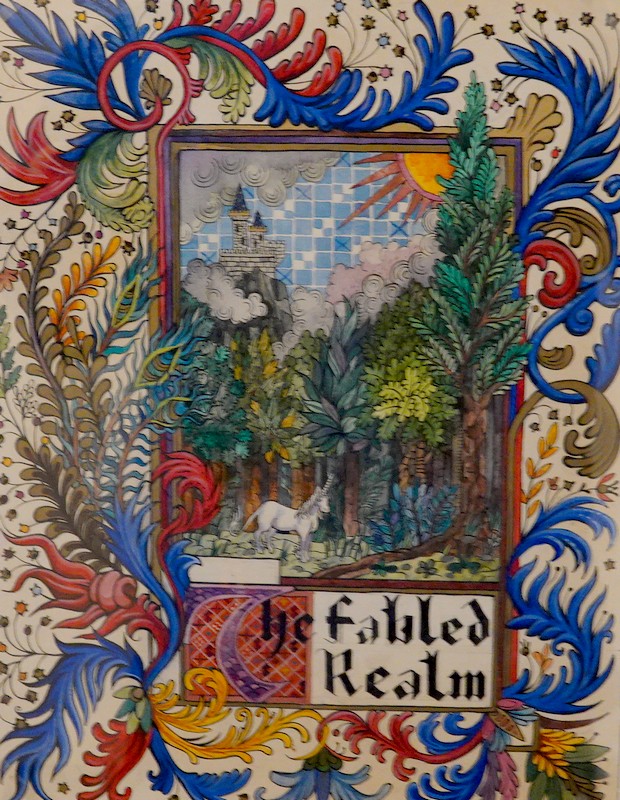 The Fabled
Realm